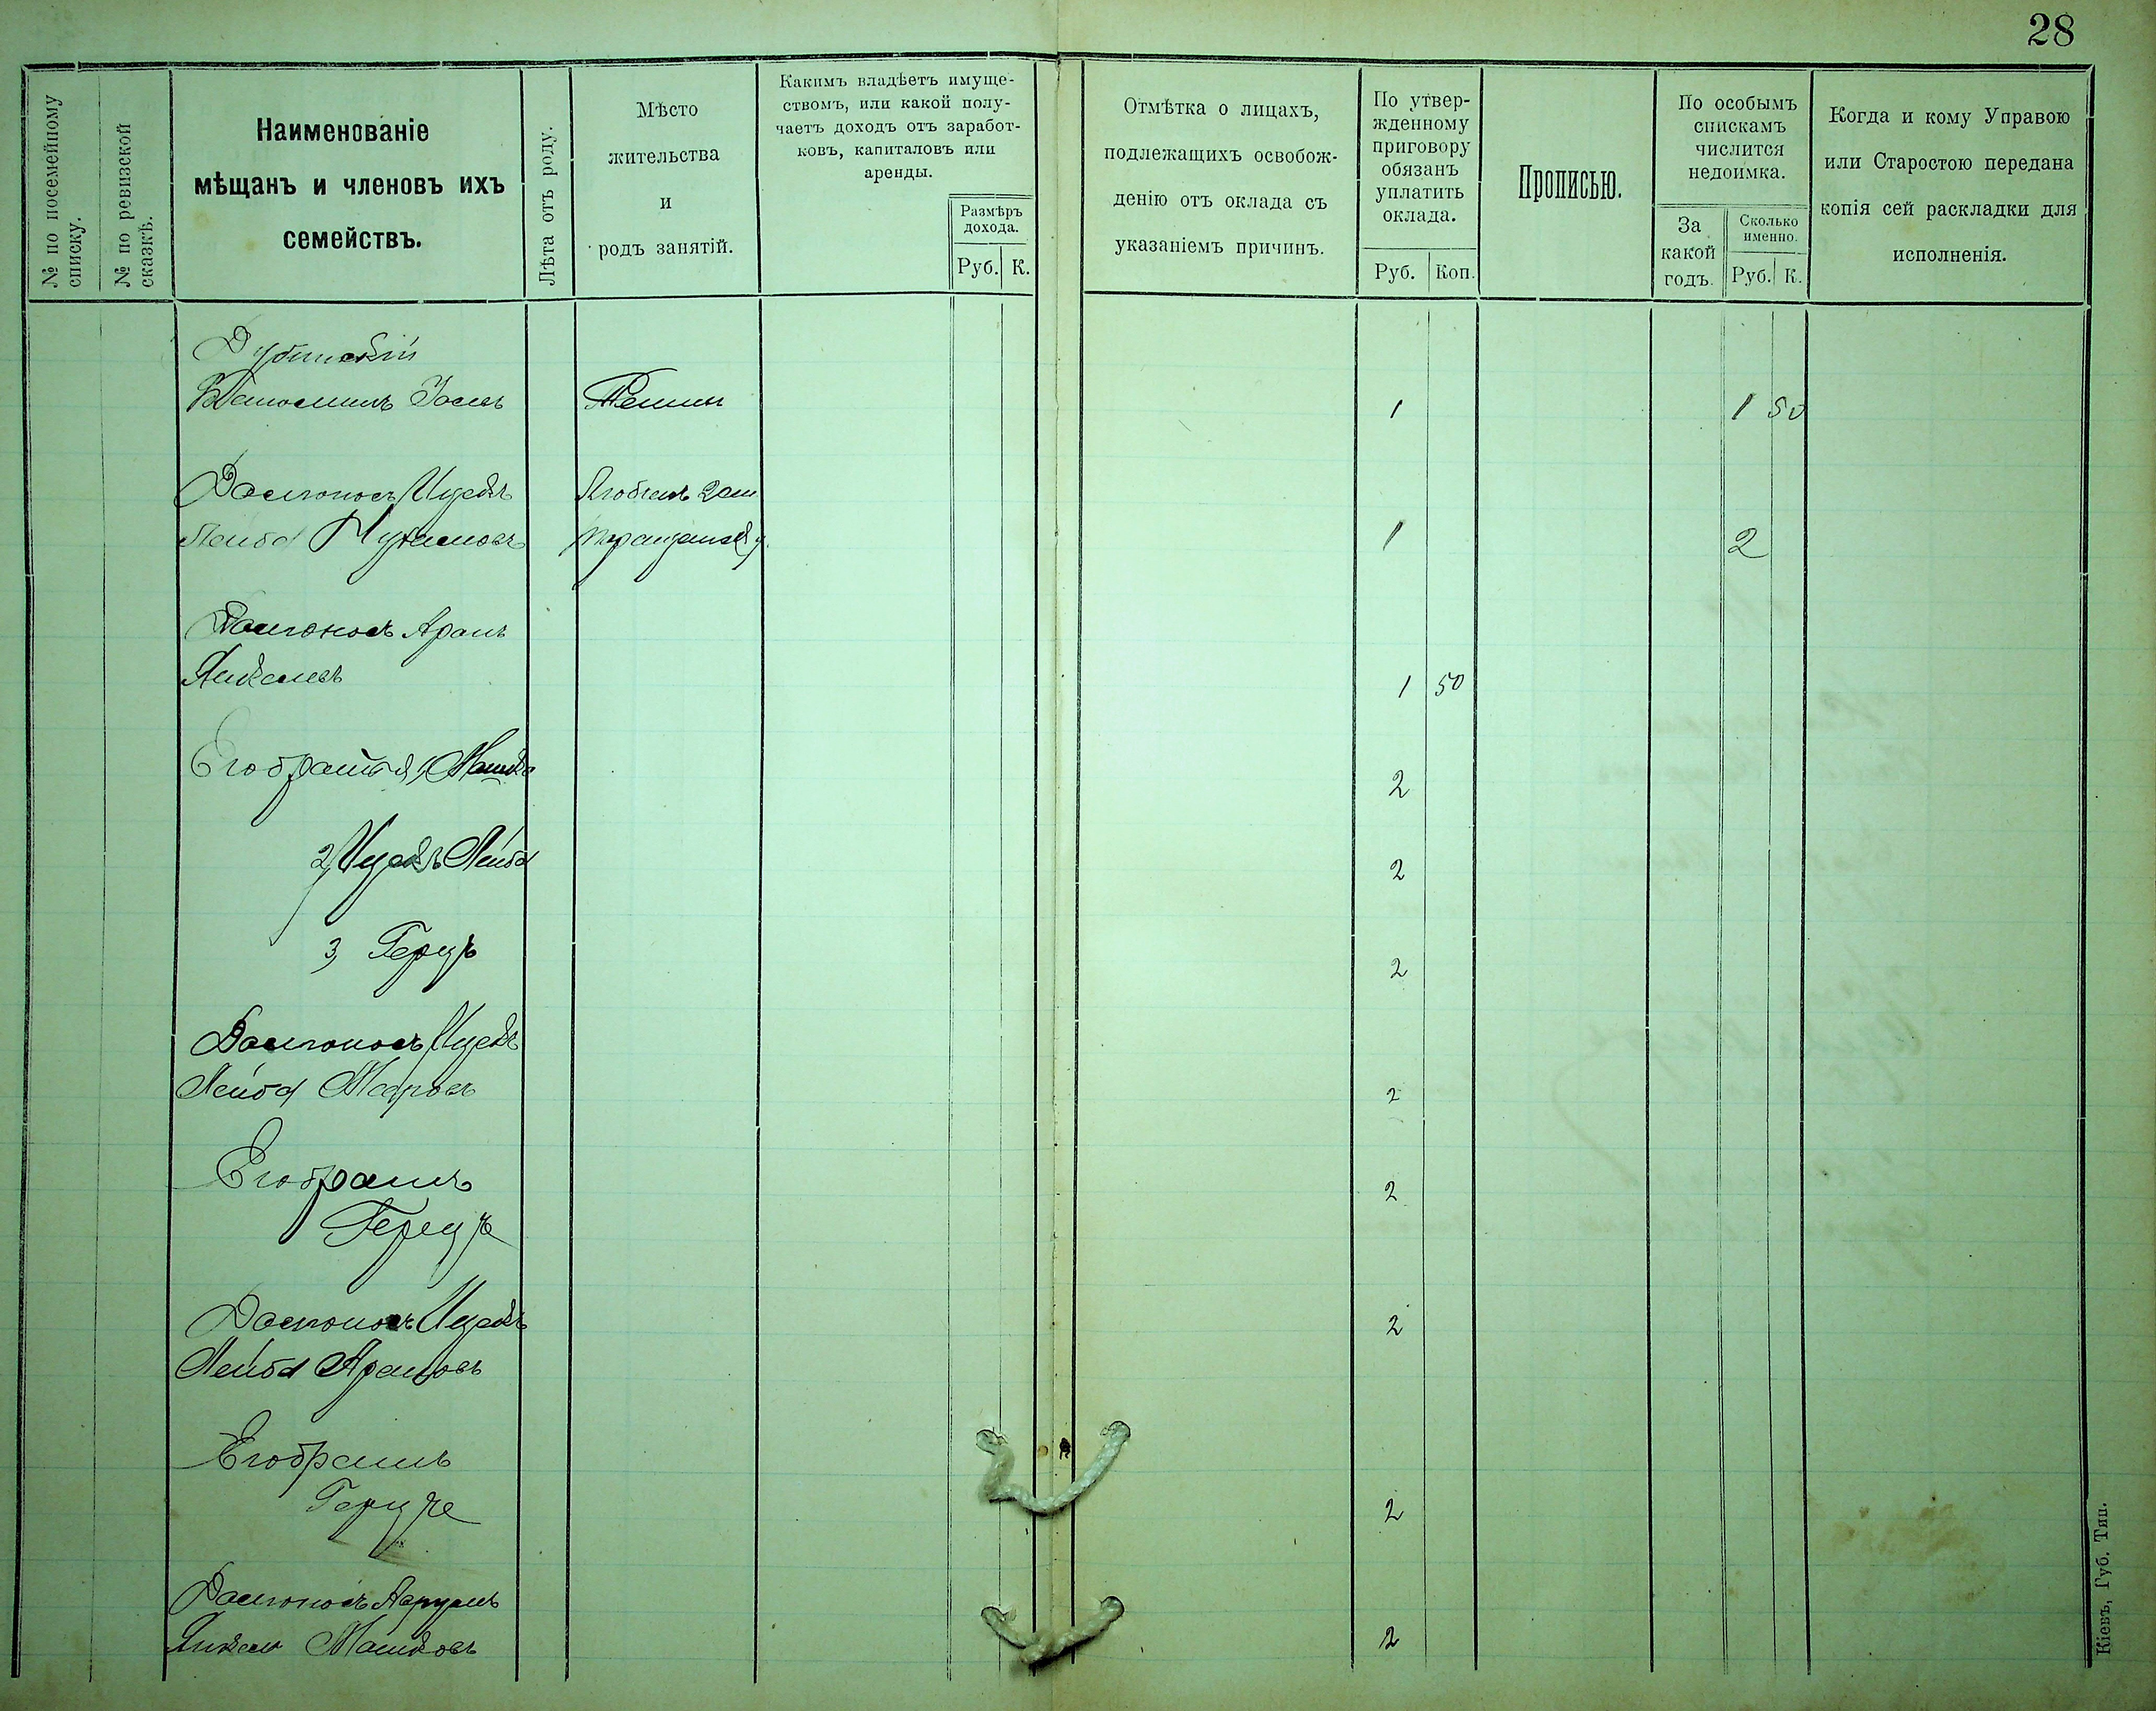 28
№ по посемейному
списку.
№ по ревизской
сказкѣ.
Наименованіе
мѣщанъ и членовъ ихъ
семействъ.
Лѣта отъ роду.
Мѣсто
жительства
и
родъ занятій.
Какимъ владѣетъ имуще-
ствомъ, или какой полу-
чаетъ доходъ отъ заработ-
ковъ, капиталовъ или
аренды.
Размѣръ
дохода.
Руб. К.
Отмѣтка о лицахъ,
подлежащихъ освобож-
денію отъ оклада съ
указаніемъ причинъ.
По утвер-
жденному
приговору
обязанъ
уплатить
оклада.
Руб. Коп.
Прописью.
По особымъ
спискамъ
числится
недоимка.
За
какой
годъ.
Сколько
именно.
Руб. К.
Когда и кому Управою
или Старостою передана
копія сей раскладки для
исполненія.
Дубинскій
1 1 50
Долгоносъ Ицекъ
Лейба 1 2
Долгоносъ Аронъ
Янкелевъ 1 50
Его братья 1, Машко 2
2, Ицекъ Лейба 2
3, Герцъ 2
Долгоносъ Ицекъ
Лейба 2
Его братъ 2
Герцъ
Долгоносъ Ицекъ 2
Лейба Ароновъ
Его братъ
Герцъ 2
Долгоносъ
Янкель Машковъ 2
Кіевъ, Губ. Тип.